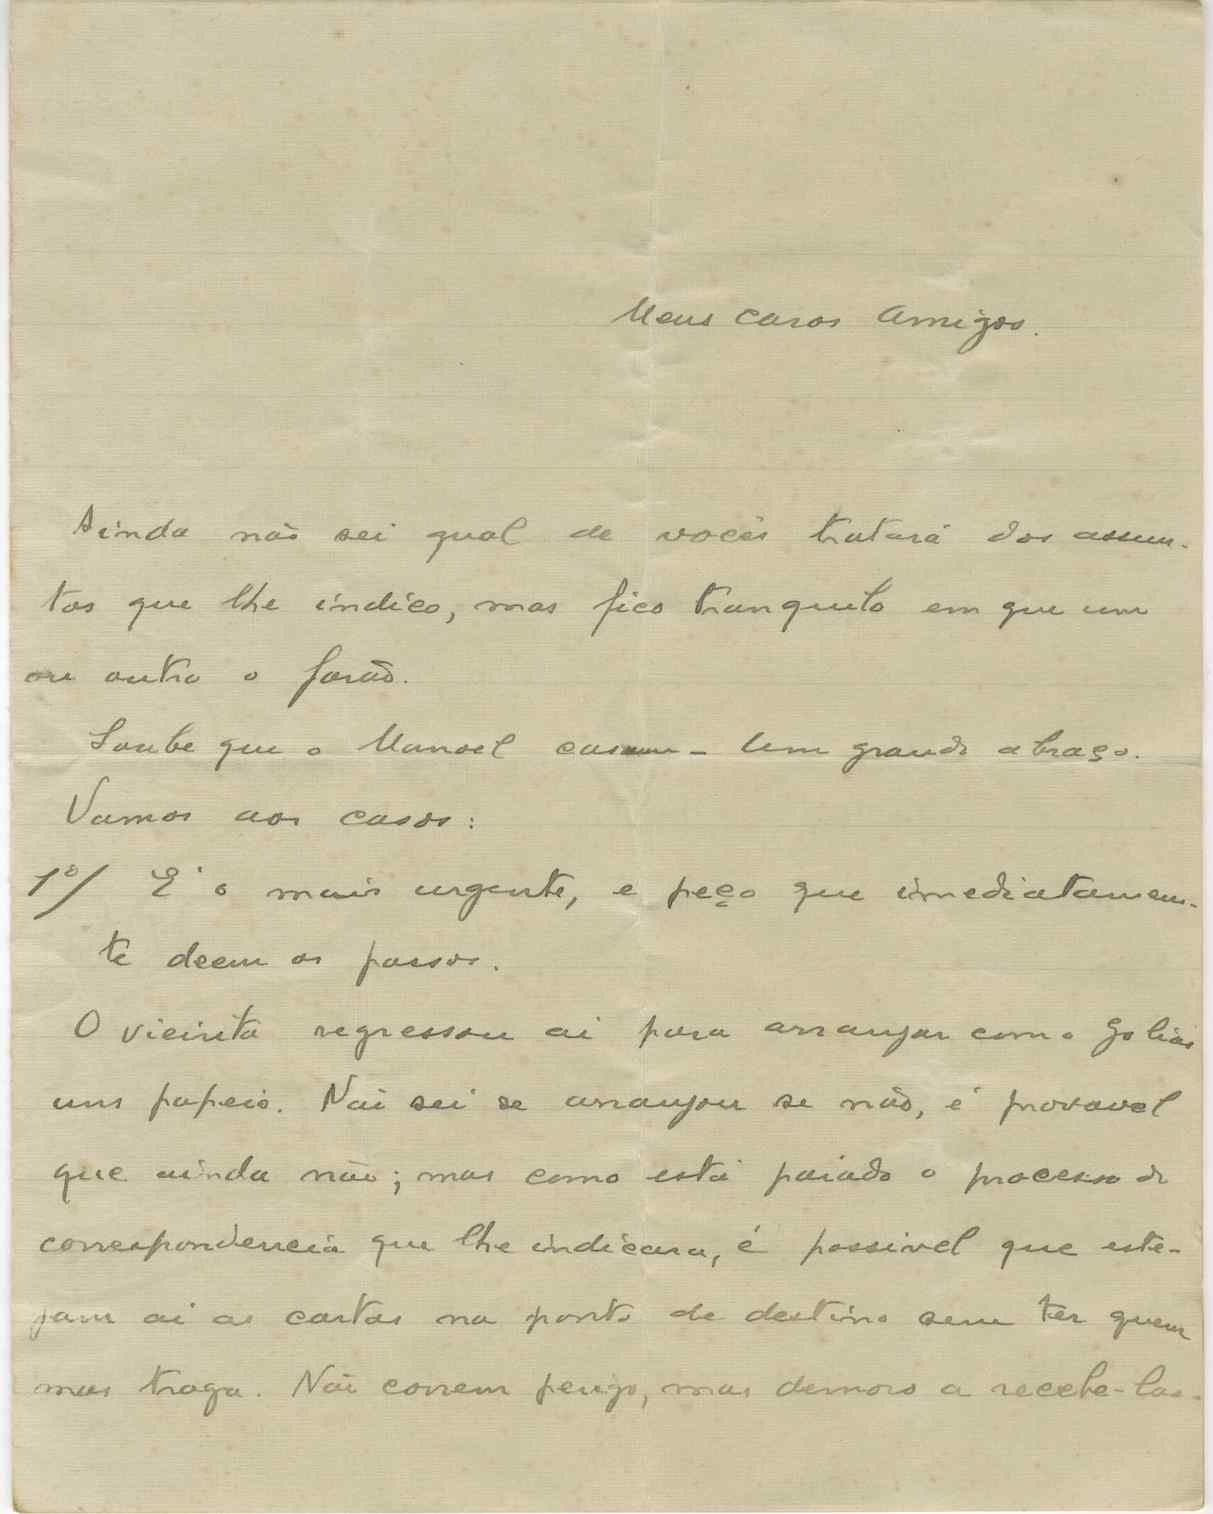 Meus caros Amigos.
Ainda não sei qual de vocês tratará dos assum-
tos que lhe indico, mas fico tranquilo em que um
ou outro o farão.
Soube que o Manoel casou - Um grande abraço.
Vamos aos casos:
1º/ E' o mais urgente, e peço que imediatamen-
te deem os passos.
O vieirita regressou ai para arranjar com o Golias
uns papeis. Não sei se arranjou se não, é provavel
que ainda não; mas como está paiado o processo de
correspondencia que lhe indicara, é possivel que este-
jam ai as cartas no ponto de destino sem ter quem
mas traga. Não correm perigo, mas demoro a recebe-las.